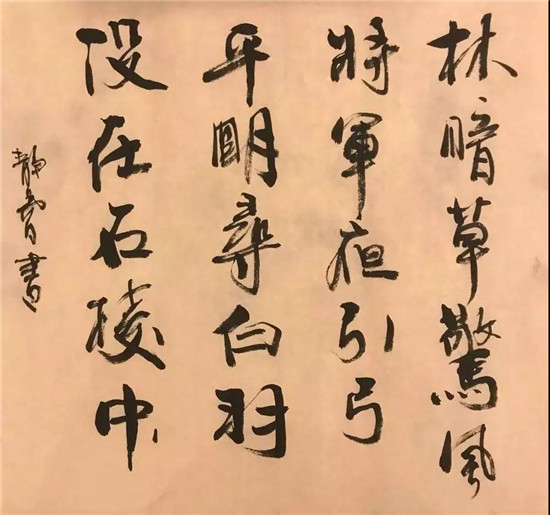 林暗草驚風
將軍夜引弓
平明尋白羽
没在石棱中
靜書